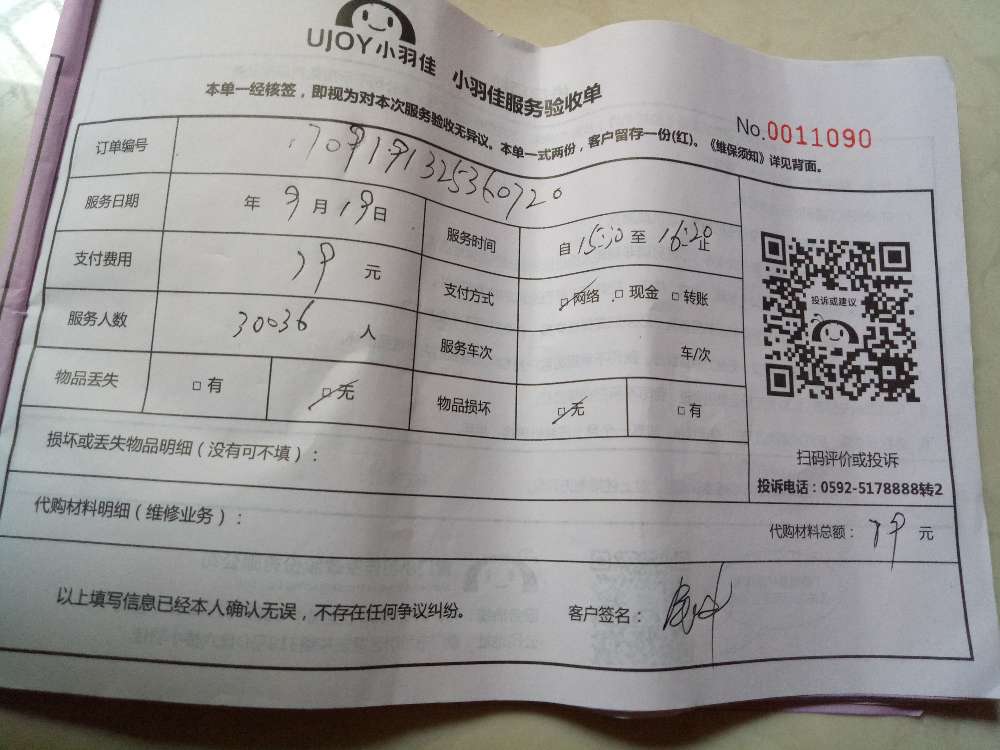 UJOY小羽佳 小羽佳服务验收单
No.0011090
本单一经核签，即视为对本次服务验收无异议。本单一式两份，客户留存一份(红)。《维保须知》详见背面。
订单编号 1709191325360720
服务日期 年 9月19日 服务时间 自15:30至16:20止
支付费用 79元 支付方式 □网络 □现金 □转账
服务人数 30036人 服务车次 车/次
物品丢失 □有 □无 物品损坏 □无 □有
投诉或建议
扫码评价或投诉
投诉电话：0592-5178888转2
损坏或丢失物品明细（没有可不填）：
代购材料明细（维修业务）：
代购材料总额：79元
以上填写信息已经本人确认无误，不存在任何争议纠纷。 客户签名：